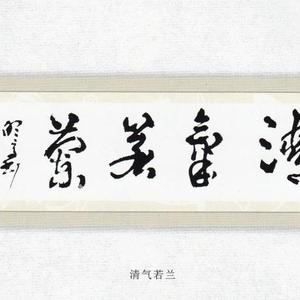 清氣若蘭
清气若兰